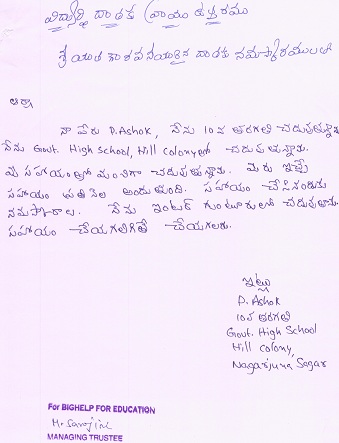 విద్యార్థి దాతకు వ్రాయు ఉత్తరము
శ్రీయుత గౌరవనీయులైన దాతకు నమస్కారములతో
ఆర్యా
నా పేరు D.Ashok, నేను 10వ తరగతి చదువుతున్నాను
నేను Govt. High School, Hill Colonyలో చదువుతున్నాను.
మీ సహాయంతో మంచిగా చదువుతున్నాను. మీరు ఇచ్చే
సహాయం ప్రతినెల అందుతుంది. సహాయం చేసినందుకు
నమస్కారాలు. నేను ఇంటర్ గుంటూరులో చదువుతాను.
సహాయం చేయగలిగితే చేయగలరు.
ఇట్లు
D. Ashok
10వ తరగతి
Govt. High School
Hill Colony,
Nagarjuna Sagar
For BIGHELP FOR EDUCATION
M. Sarojini
MANAGING TRUSTEE